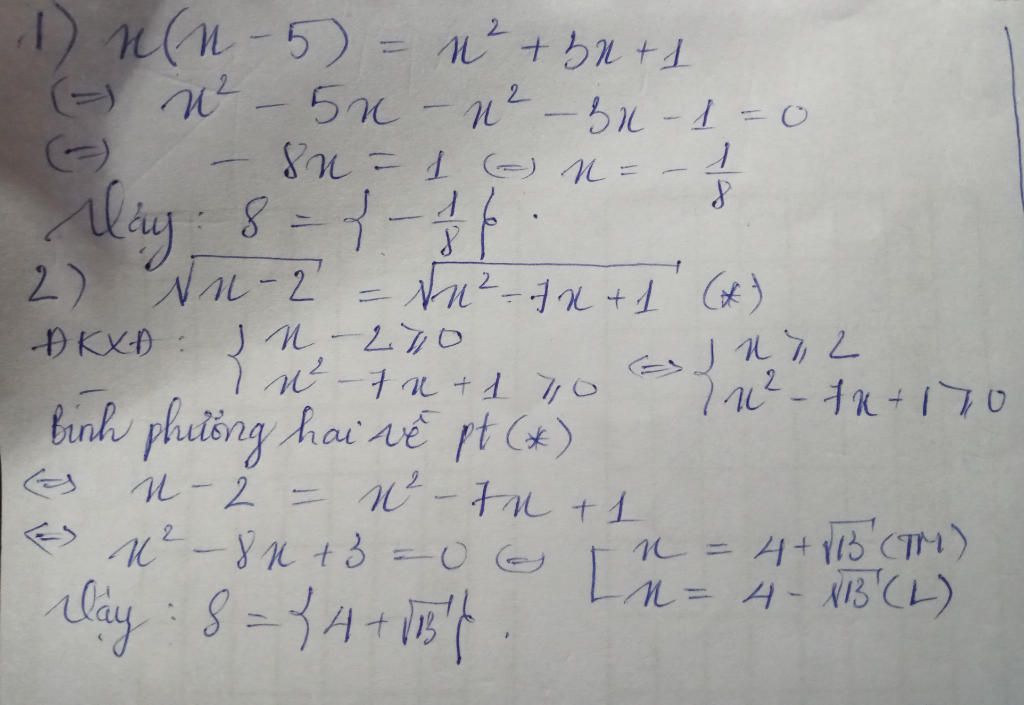 1) x(x - 5) = x² + 3x + 1
(=) x² - 5x - x² - 3x - 1 = 0
(=) - 8x = 1 (=) x = - 1/8
Vậy : S = { - 1/8 } .
2) √(x - 2) = √(x² - 7x + 1) (*)
ĐKXĐ : { x - 2 ⩾ 0 <=> { x ⩾ 2
x² - 7x + 1 ⩾ 0 x² - 7x + 1 ⩾ 0
Bình phương hai vế pt (*)
<=> x - 2 = x² - 7x + 1
<=> x² - 8x + 3 = 0 <=> [ x = 4 + √13 (TM)
x = 4 - √13 (L)
Vậy : S = { 4 + √13 } .